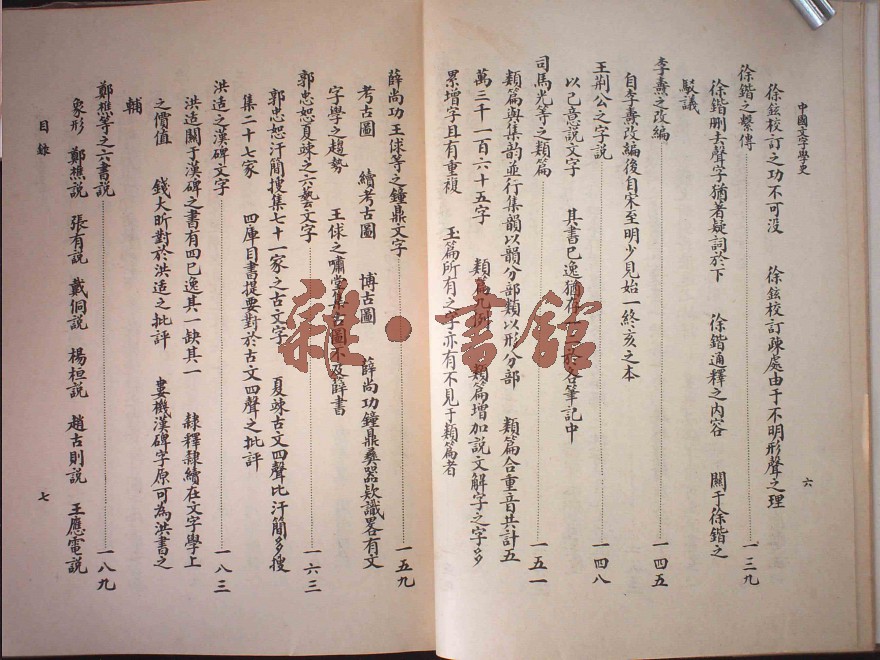 中國文字學史
六
徐鉉校訂之功不可没　徐鉉校訂疎處由于不明形聲之理
徐鍇之繫傳……一三九
徐鍇刪去聲字猶著疑詞於下　徐鍇通釋之内容　關于徐鍇之
駁議
李燾之改編……一四五
自李燾改編後自宋至明少見始一終亥之本
王荆公之字說……一四八
以己意說文字　其書已逸猶存一二於各筆記中
司馬光等之類篇……一五一
類篇與集韵並行集韻以韻分部類以形分部　類篇合重音共計五
萬三千一百六十五字　類篇凡例　類篇增加說文解字之字多
累增字且有重複　玉篇所有之字亦有不見于類篇者
薛尚功王俅等之鐘鼎文字……一五九
考古圖　續考古圖　博古圖　薛尚功鐘鼎彝器欵識畧有文
字學之趨勢　王俅之嘯堂集古圖不及薛書
郭忠恕夏竦之六藝文字……一六三
郭忠恕汗簡搜集七十一家之古文字　夏竦古文四聲比汗簡多搜
集二十七家　四庫目書提要對於古文四聲之批評
洪造之漢碑文字……一八三
洪造關于漢碑之書有四已逸其一缺其一　隸釋隸續在文字學上
之價值　錢大昕對於洪造之批評　婁機漢碑字原可為洪書之
輔
鄭樵等之六書說……一八九
象形　鄭樵說　張有說　戴侗說　楊桓說　趙古則說　王應電說
目錄
七
雜·書館